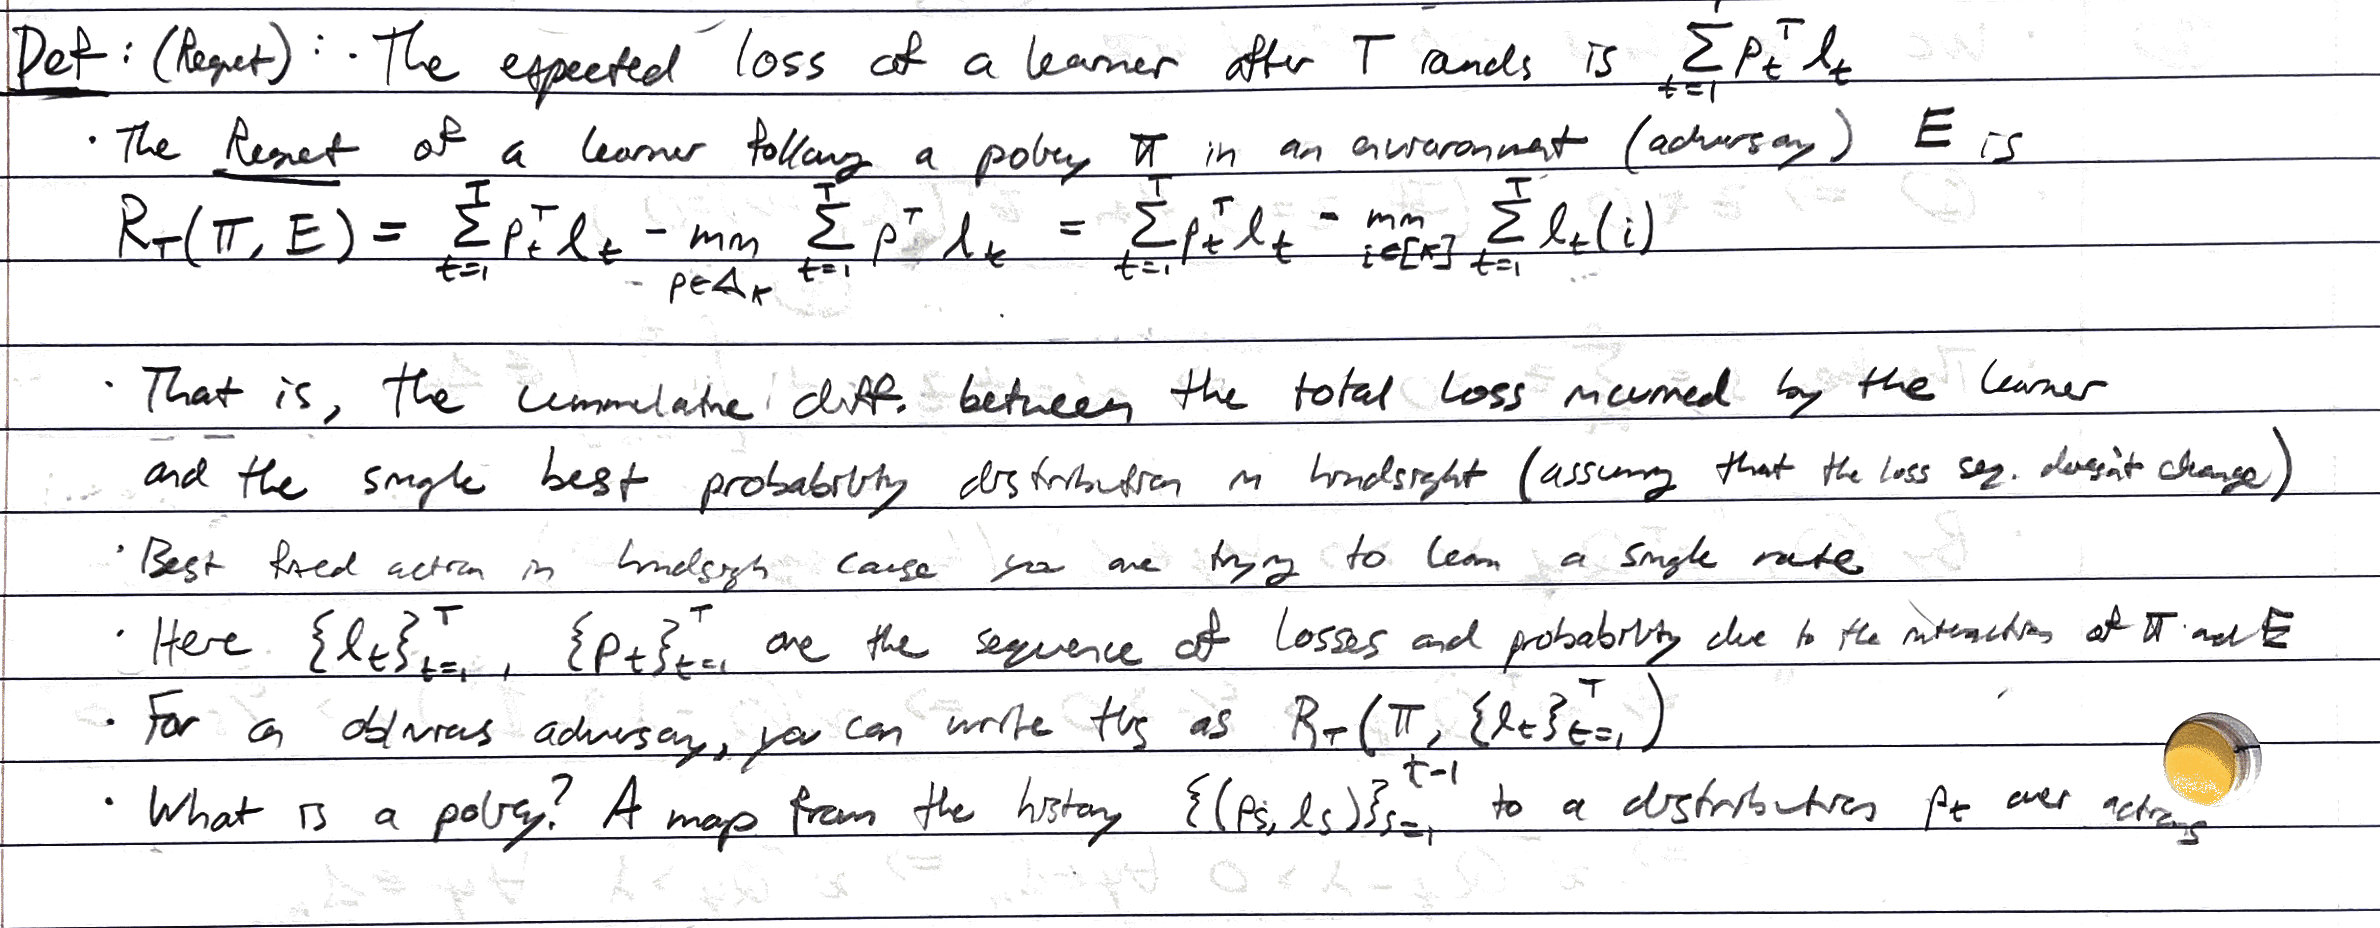 Def: (Regret): · The expected loss of a learner after T rounds is $\sum_{t=1}^{T} p_t^T l_t$
· The Regret of a learner following a policy π in an environment (adversary) E is
$R_T(π, E) = \sum_{t=1}^{T} p_t^T l_t - \min_{p \in Δ_K} \sum_{t=1}^{T} p^T l_t = \sum_{t=1}^{T} p_t^T l_t - \min_{i \in [K]} \sum_{t=1}^{T} l_t(i)$
· That is, the cummulative diff. between the total loss incurred by the learner
and the single best probability distribution in hindsight (assuming that the loss seq. doesn't change)
· Best fixed action in hindsigh cause you are trying to learn a single
· Here $\{l_t\}_{t=1}^{T}$, $\{p_t\}_{t=1}^{T}$ are the sequence of losses and probability due to the interaction of π and E
· For an oblivious adversary, you can write this as $R_T(π, \{l_t\}_{t=1}^{T})$
· What is a policy? A map from the history $\{(p_s, l_s)\}_{s=1}^{t-1}$ to a distribution $p_t$ over actions